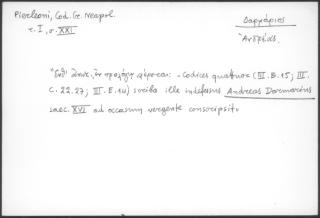 Pierleoni, Cod. Gr. Neapol.
τ. I, σ. XXI
Δαρμάριος
Ἀνδρέας.
ἐν προλόγῳ φέρεται: "Codices quatuor (III. B. 15; III.
C. 22. 27; III. E. 14) scriba ille indefessus Andreas Darmarius
saec. XVI ad occasum vergente conscripsit"